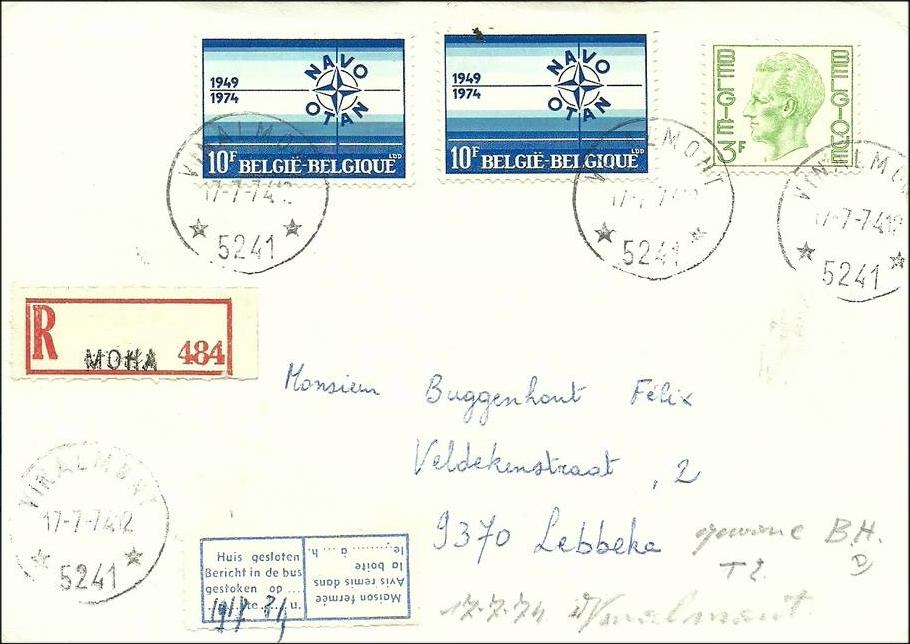 1949
1974
NAVO
OTAN
10F BELGIË-BELGIQUE
LDD
1949
1974
NAVO
OTAN
10F BELGIË-BELGIQUE
LDD
BELGIE BELGIQUE
3F
VINALMONT
17-7-74 12
5241
VINALMONT
17-7-74 12
5241
VINALMONT
17-7-74 12
5241
R MOHA 484
Monsieur Buggenhout Félix
Veldekenstraat, 2
9370 Lebbeke
VINALMONT
17-7-74 12
5241
Huis gesloten
Bericht in de bus
gestoken op ....
te.......u.
Maison fermée
Avis remis dans
la boîte
le,........ à .... h.
B.H.
T2
17-7-74 Vinalmont